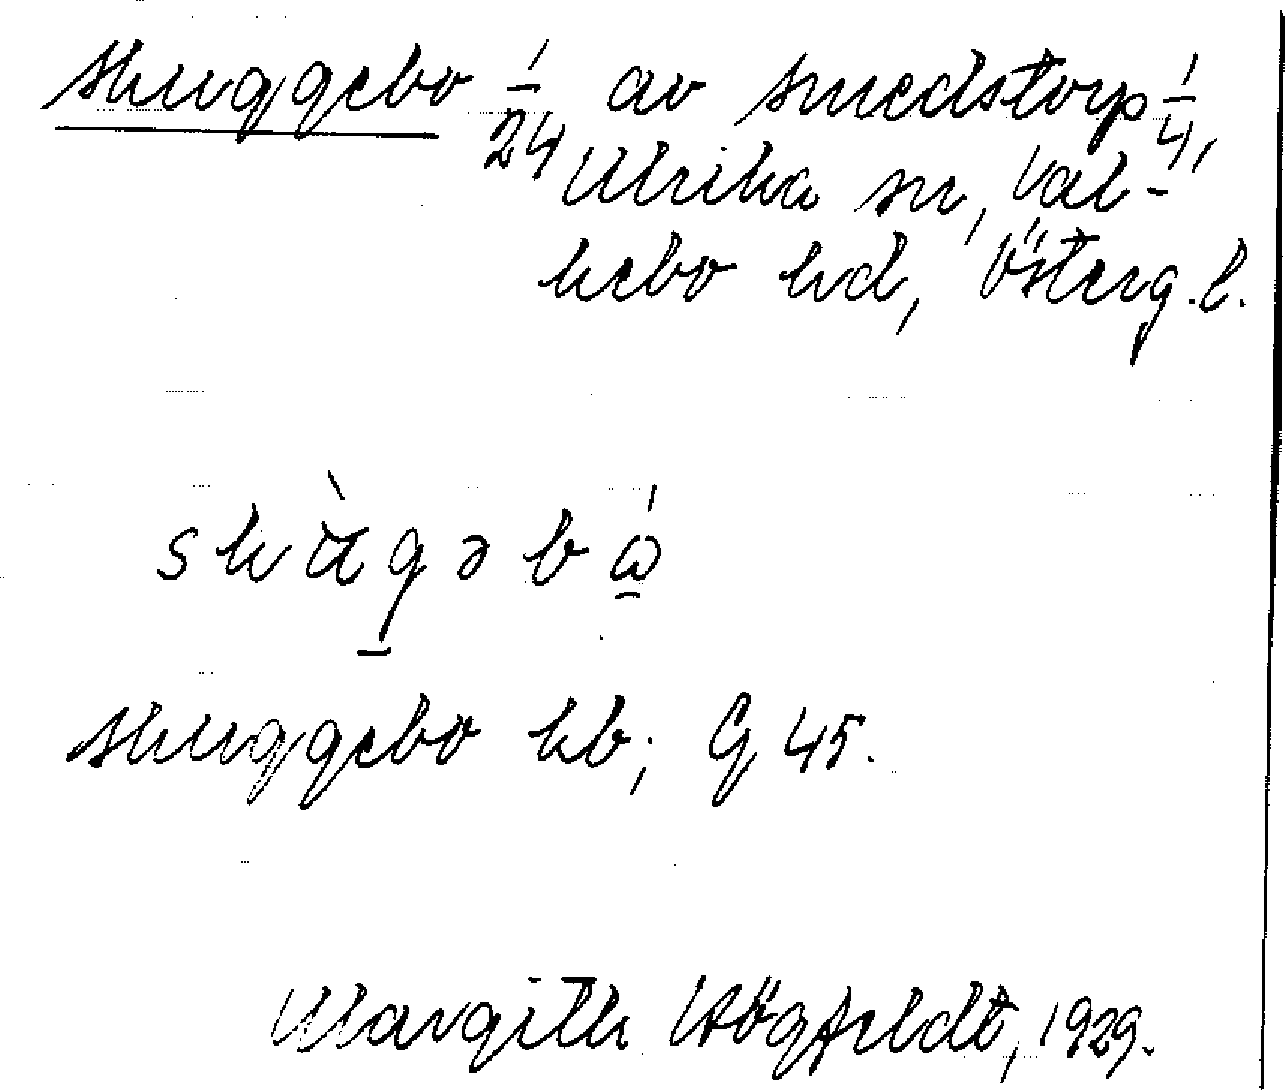 Skuggebo 1/24 av Smedstorp 1/4,
Ulrika sn, Val-
kebo hd, Österg.l.
skùgəbó
Skuggebo kb; G 45.
Margith Högfeldt, 1929.